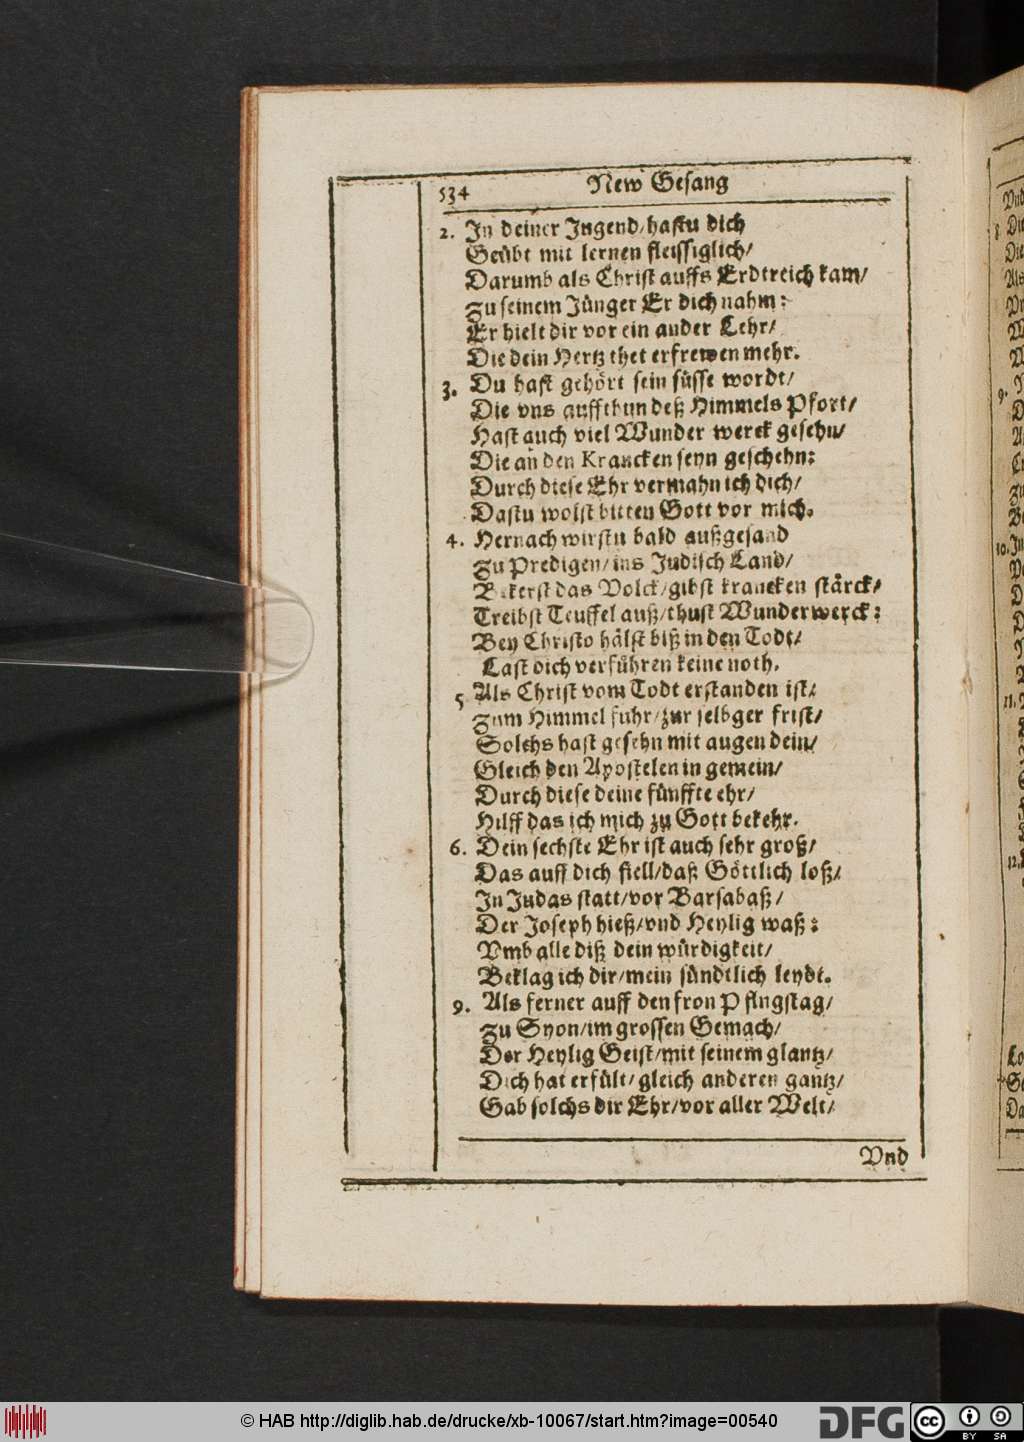 534
New Gesang
2. In deiner Jugend/hastu dich
Geübt mit lernen fleissiglich/
Darumb als Christ auffs Erdtreich kam/
Zu seinem Jünger Er dich nahm:
Er hielt dir vor ein ander Lehr/
Die dein Hertz thet erfrewen mehr.
3. Du hast gehört sein süsse wordt/
Die vns auffthun deß Himmels Pfort/
Hast auch viel Wunder werck gesehn/
Die an den Krancken seyn geschehn:
Durch diese Ehr vermahn ich dich/
Dastu wolst bitten Gott vor mich.
4. Hernach wirstu bald außgesand
Zu Predigen/ins Jüdisch Land/
Bekerst das Volck/gibst krancken stärck/
Treibst Teuffel auß/thust Wunderwerck:
Bey Christo hälst biß in den Todt/
Last dich verführen keine noth.
5 Als Christ vom Todt erstanden ist/
Zum Himmel fuhr/zur selbger frist/
Solchs hast gesehn mit augen dein/
Gleich den Apostelen in gemein/
Durch diese deine fünffte ehr/
Hilff das ich mich zu Gott bekehr.
6. Dein sechste Ehr ist auch sehr groß/
Das auff dich fiell/daß Göttlich loß/
In Judas statt/vor Barsabaß/
Der Joseph hieß/vnd Heylig waß:
Vmb alle diß dein würdigkeit/
Beklag ich dir/mein sündtlich leydt.
9. Als ferner auff den fron Pfingstag/
Zu Syon/im grossen Gemach/
Der Heylig Geist/mit seinem glantz/
Dich hat erfült/gleich anderen gantz/
Gab solchs dir Ehr/vor aller Welt/
Vnd
© HAB http://diglib.hab.de/drucke/xb-10067/start.htm?image=00540
DFG
cc
BY SA